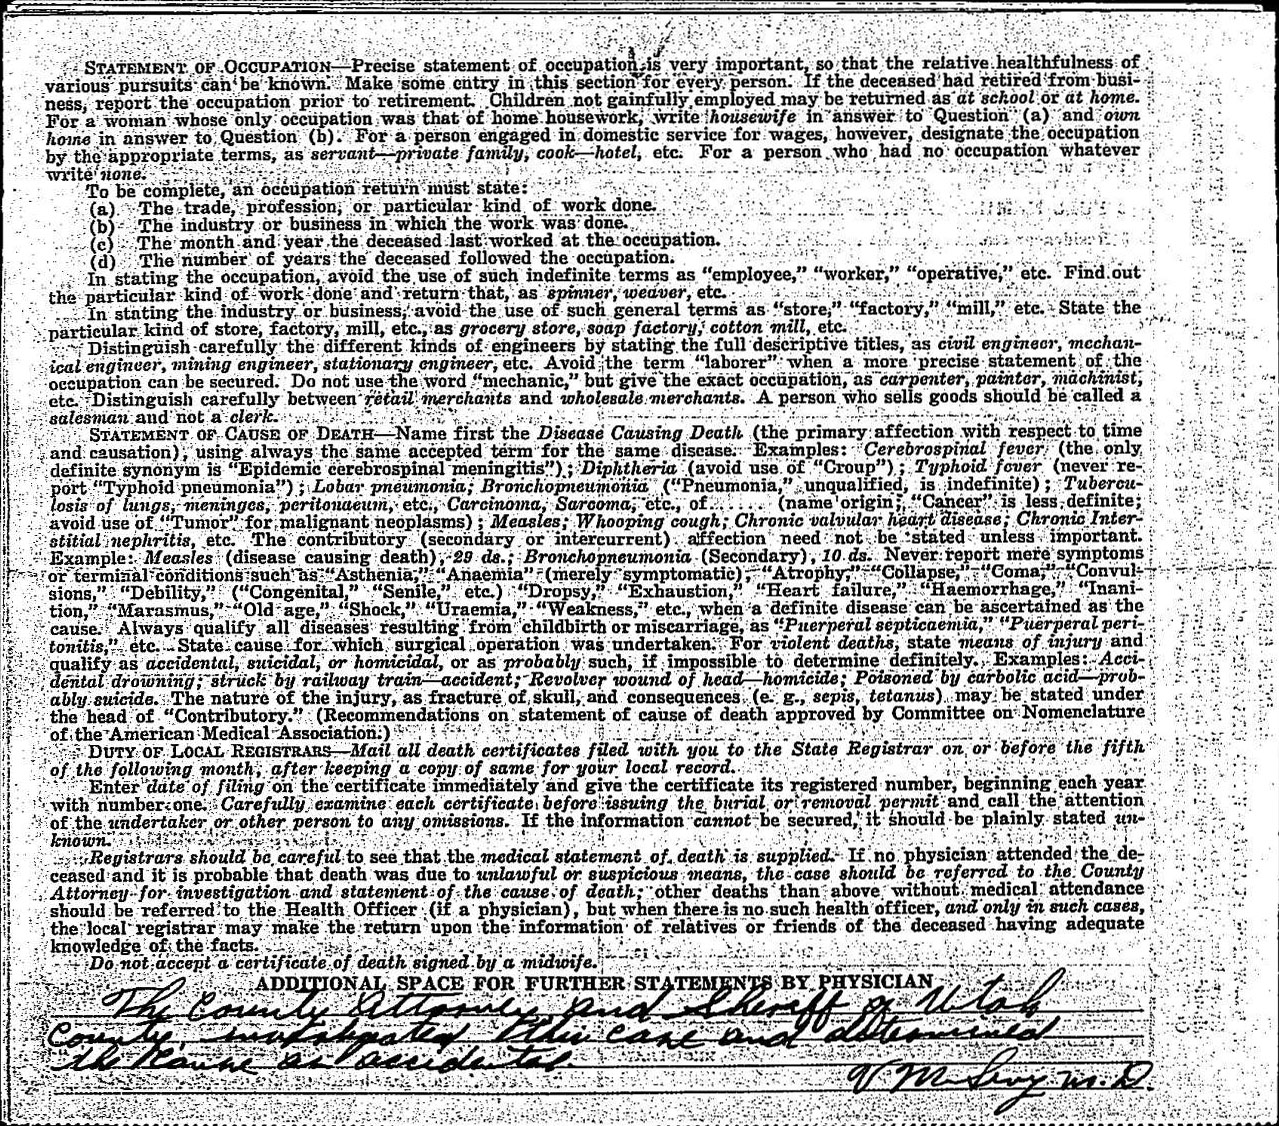 STATEMENT OF OCCUPATION—Precise statement of occupation is very important, so that the relative healthfulness of
various pursuits can be known. Make some entry in this section for every person. If the deceased had retired from busi-
ness, report the occupation prior to retirement. Children not gainfully employed may be returned as at school or at home.
For a woman whose only occupation was that of home housework, write housewife in answer to Question (a) and own
home in answer to Question (b). For a person engaged in domestic service for wages, however, designate the occupation
by the appropriate terms, as servant—private family, cook—hotel, etc. For a person who had no occupation whatever
write none.
To be complete, an occupation return must state:
(a) The trade, profession, or particular kind of work done.
(b) The industry or business in which the work was done.
(c) The month and year the deceased last worked at the occupation.
(d) The number of years the deceased followed the occupation.
In stating the occupation, avoid the use of such indefinite terms as "employee," "worker," "operative," etc. Find out
the particular kind of work done and return that, as spinner, weaver, etc.
In stating the industry or business, avoid the use of such general terms as "store," "factory," "mill," etc. State the
particular kind of store, factory, mill, etc., as grocery store, soap factory, cotton mill, etc.
Distinguish carefully the different kinds of engineers by stating the full descriptive titles, as civil engineer, mechan-
ical engineer, mining engineer, stationary engineer, etc. Avoid the term "laborer" when a more precise statement of the
occupation can be secured. Do not use the word "mechanic," but give the exact occupation, as carpenter, painter, machinist,
etc. Distinguish carefully between retail merchants and wholesale merchants. A person who sells goods should be called a
salesman and not a clerk.
STATEMENT OF CAUSE OF DEATH—Name first the Disease Causing Death (the primary affection with respect to time
and causation), using always the same accepted term for the same disease. Examples: Cerebrospinal fever (the only
definite synonym is "Epidemic cerebrospinal meningitis"); Diphtheria (avoid use of "Croup"); Typhoid fever (never re-
port "Typhoid pneumonia"); Lobar pneumonia; Bronchopneumonia ("Pneumonia," unqualified, is indefinite); Tubercu-
losis of lungs, meninges, peritonaeum, etc., Carcinoma, Sarcoma, etc., of....... (name origin; "Cancer" is less definite;
avoid use of "Tumor" for malignant neoplasms); Measles; Whooping cough; Chronic valvular heart disease; Chronic Inter-
stitial nephritis, etc. The contributory (secondary or intercurrent) affection need not be stated unless important.
Example: Measles (disease causing death), 29 ds.; Bronchopneumonia (Secondary), 10 ds. Never report mere symptoms
or terminal conditions such as "Asthenia," "Anaemia" (merely symptomatic), "Atrophy," "Collapse," "Coma," "Convul-
sions," "Debility," ("Congenital," "Senile," etc.) "Dropsy," "Exhaustion," "Heart failure," "Haemorrhage," "Inani-
tion," "Marasmus," "Old age," "Shock," "Uraemia," "Weakness," etc., when a definite disease can be ascertained as the
cause. Always qualify all diseases resulting from childbirth or miscarriage, as "Puerperal septicaemia," "Puerperal peri-
tonitis," etc. State cause for which surgical operation was undertaken. For violent deaths, state means of injury and
qualify as accidental, suicidal, or homicidal, or as probably such, if impossible to determine definitely. Examples: Acci-
dental drowning; struck by railway train—accident; Revolver wound of head—homicide; Poisoned by carbolic acid—prob-
ably suicide. The nature of the injury, as fracture of skull, and consequences (e. g., sepis, tetanus) may be stated under
the head of "Contributory." (Recommendations on statement of cause of death approved by Committee on Nomenclature
of the American Medical Association.)
DUTY OF LOCAL REGISTRARS—Mail all death certificates filed with you to the State Registrar on or before the fifth
of the following month, after keeping a copy of same for your local record.
Enter date of filing on the certificate immediately and give the certificate its registered number, beginning each year
with number one. Carefully examine each certificate before issuing the burial or removal permit and call the attention
of the undertaker or other person to any omissions. If the information cannot be secured, it should be plainly stated un-
known.
Registrars should be careful to see that the medical statement of death is supplied. If no physician attended the de-
ceased and it is probable that death was due to unlawful or suspicious means, the case should be referred to the County
Attorney for investigation and statement of the cause of death; other deaths than above without medical attendance
should be referred to the Health Officer (if a physician), but when there is no such health officer, and only in such cases,
the local registrar may make the return upon the information of relatives or friends of the deceased having adequate
knowledge of the facts.
Do not accept a certificate of death signed by a midwife.
ADDITIONAL SPACE FOR FURTHER STATEMENTS BY PHYSICIAN
The County Attorney and Sheriff of Utah
County investigated this case and determined
the cause as accidental.
M.D.